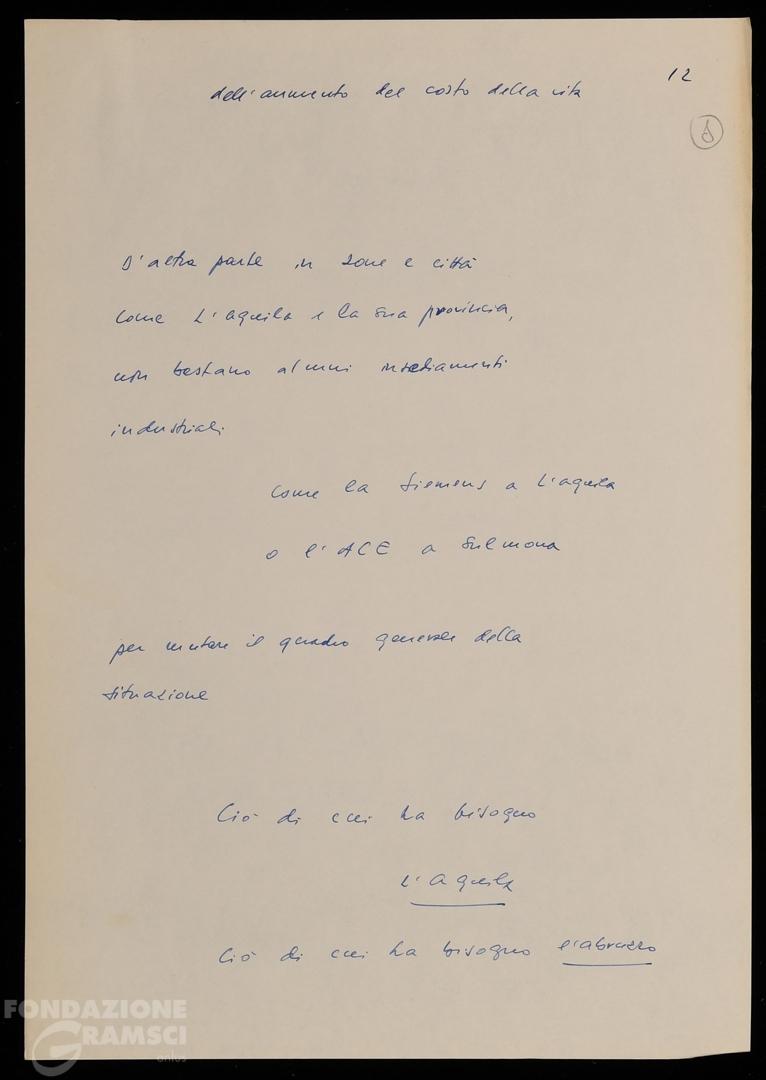 12
dell'aumento del costo della vita
D'altra parte in zone e città
come L'aquila e la sua provincia,
non bastano alcuni insediamenti
industriali
come la Siemens a L'aquila
o l'ACE a Sulmona
per mutare il quadro generale della
situazione
Ciò di cui ha bisogno
L'aquila
Ciò di cui ha bisogno l'abruzzo
FONDAZIONE
GRAMSCI
onlus